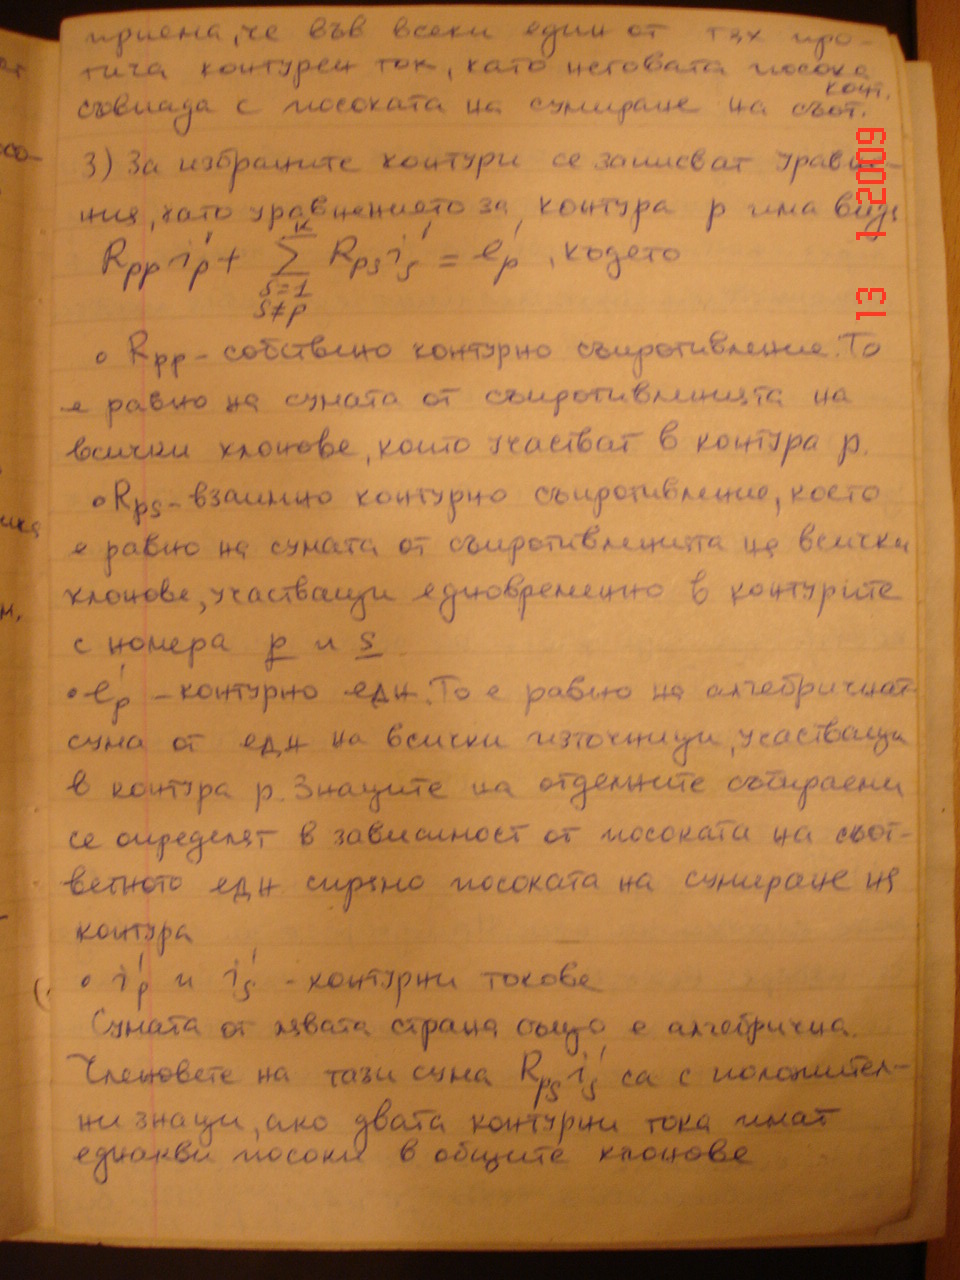 приема, че във всеки един от тях про-
тича контурен ток, като неговата посока
конт.
съвпада с посоката на сумиране на съот.
3) За избраните контури се записват уравне-
ния, като уравнението за контура p има вида
R_pp i'_p + Σ_{s=1, s≠p}^{k} R_ps i'_s = e'_p, където
• R_pp - собствено контурно съпротивление. То
е равно на сумата от съпротивленията на
всички клонове, които участват в контура p.
• R_ps - взаимно контурно съпротивление, което
е равно на сумата от съпротивленията на всички
клонове, участващи едновременно в контурите
с номера p и s
• e'_p - контурно едн. То е равно на алгебричнат
сума от едн на всички източници, участващи
в контура p. Знаците на отделните събираеми
се определят в зависимост от посоката на съот-
ветното едн спрямо посоката на сумиране на
контура
• i'_p и i'_s - контурни токове
Сумата от лявата страна също е алгебрична.
Членовете на тази сума R_ps i'_s са с положител-
ни знаци, ако двата контурни тока имат
еднакви посоки в общите клонове
13 1 2009